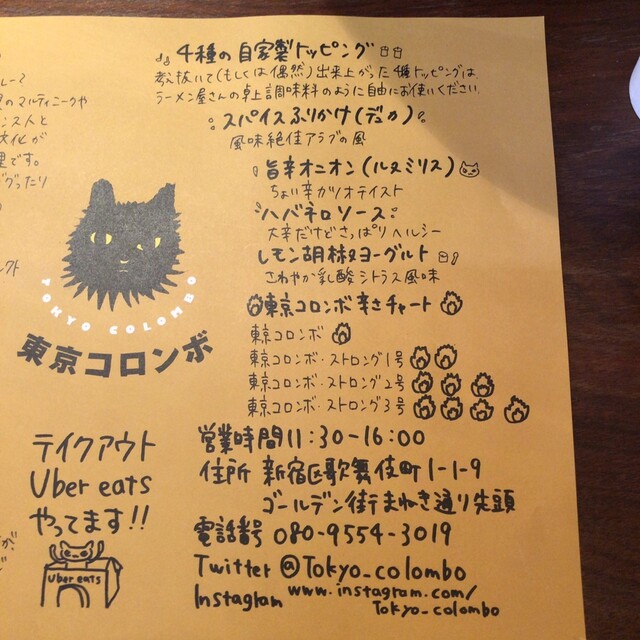 4種の自家製トッピング
考え抜いて(もしくは偶然)出来上がった4種トッピングは、
ラーメン屋さんの卓上調味料のように自由にお使いください。
スパイスふりかけ(デュカ)
風味絶佳アラブの風
旨辛オニオン(ルヌミリス)
ちょい辛カツオテイスト
ハバネロソース
大辛だけどさっぱりヘルシー
レモン胡椒ヨーグルト
さわやか乳酸シトラス風味
東京コロンボ辛さチャート
東京コロンボ
東京コロンボ・ストロング1号
東京コロンボ・ストロング2号
東京コロンボ・ストロング3号
マルティニークや
ンス人と
文化が
です。
ぐったり
TOKYO COLOMBO
東京コロンボ
テイクアウト
Uber eats
やってます!!
Uber eats
営業時間11:30-16:00
住所 新宿区歌舞伎町1-1-9
ゴールデン街まねき通り先頭
電話番号 080-9554-3019
Twitter @Tokyo_colombo
Instagram www.instagram.com/
Tokyo_colombo